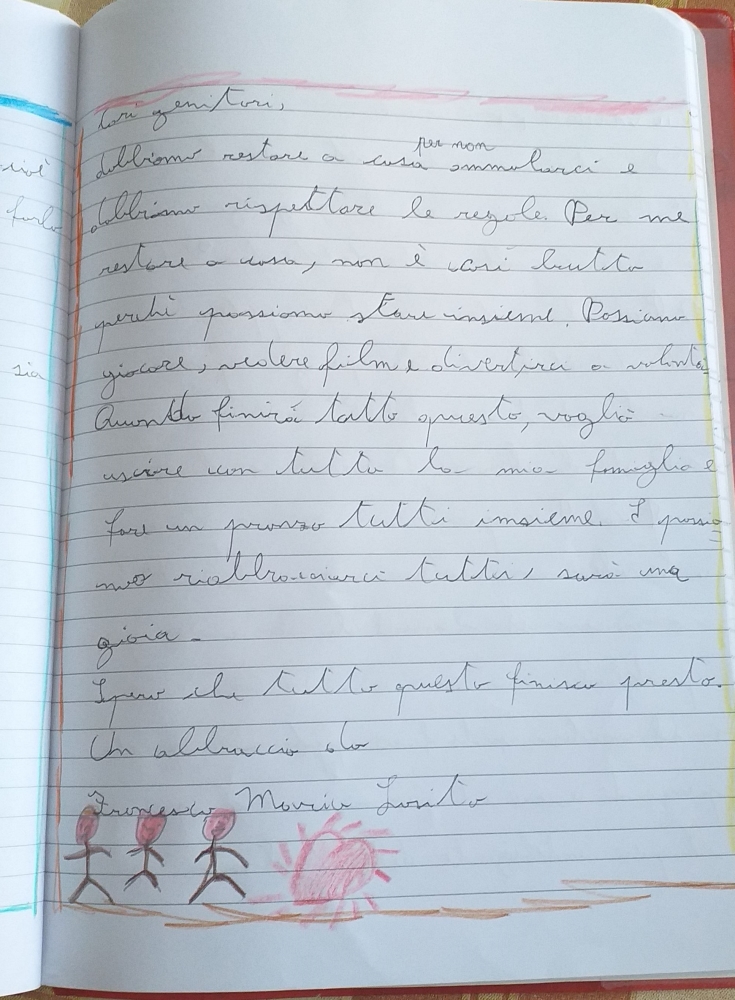 Cari genitori,
dobbiamo restare a casa per non ammalarci e
dobbiamo rispettare le regole. Per me
restare a casa, non è così brutto
perchè possiamo stare insieme. Possiamo
giocare, vedere film e divertirci a volontà
Quando finirà tutto questo, voglio
uscire con tutta la mia famiglia e
fare un pranzo tutti insieme. E possia=
mo riabbracciarci tutti, sarà una
gioia -
Spero che tutto questo finisca presto.
Un abbraccio da
Francesco Maria Losito
sia